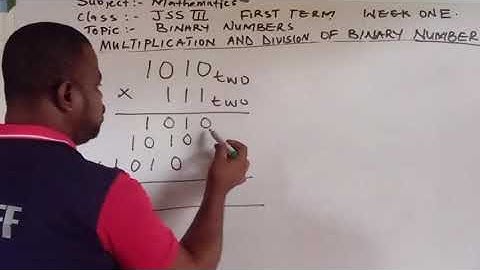 Subject:- Mathematics-
Class:- JSS III FIRST TERM WEEK ONE.
Topic:- BINARY NUMBERS
MULTIPLICATION AND DIVISION OF BINARY NUMBER
1010two
× 111two
1010
1010
1010
FF